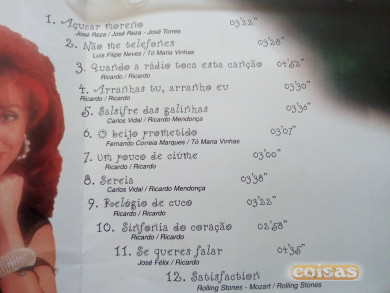 1. Açucar moreno 03'22"
José Reza / José Reza - José Torres
2. Não me telefones 03'28"
Luís Filipe Neves / Tó Maria Vinhas
3. Quando a rádio toca esta canção 04'52"
Ricardo / Ricardo
4. Arranhas tu, arranho eu 03'30"
Ricardo / Ricardo
5. Salsifre das galinhas 03'36"
Carlos Vidal / Ricardo Mendonça
6. O beijo prometido 03'07"
Fernando Correia Marques / Tó Maria Vinhas
7. um pouco de ciúme 03'00"
Ricardo / Ricardo
8. Sereia 03'38"
Carlos Vidal / Ricardo Mendonça
9. Relógio de cuco 03'22"
Ricardo / Ricardo
10. Sinfonia do coração 02'58"
Ricardo / Ricardo
11. Se queres falar 04'35"
José Félix / Ricardo
12. Satisfaction
Rolling Stones - Mozart / Rolling Stones
coisas